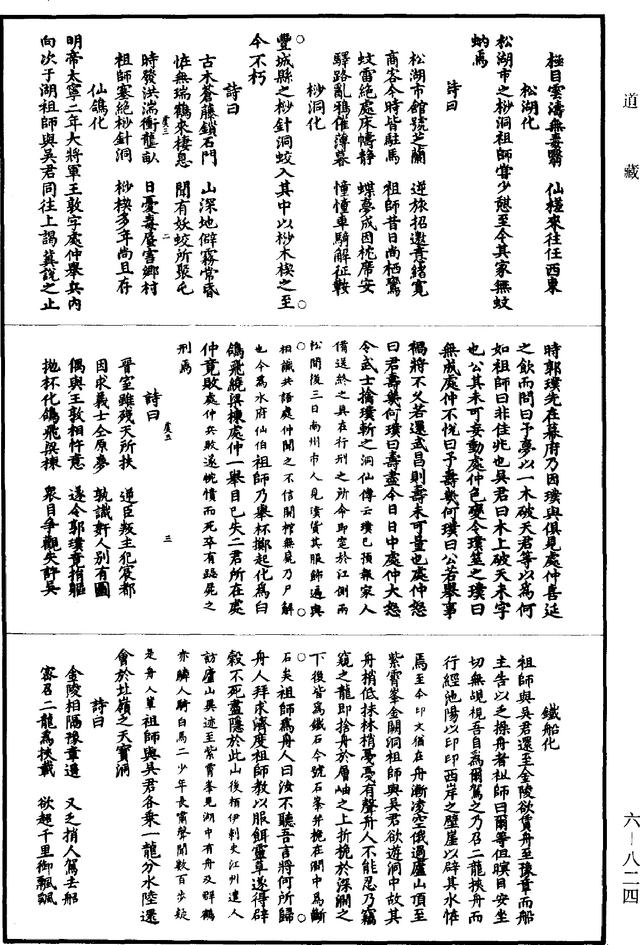 極目雲濤無毒翳　仙槎來往任西東
松湖化
松湖市之杪洞祖師嘗少憇至今其家無蚊
蚋焉
詩曰
松湖市館號芝蘭　逆旅招邀青緒寬
商客今時皆駐馬　祖師昔日尚栖鸞
蚊雷絶處床幬靜　蝶夢成因枕席安
驛路亂鴉催薄暮　憧憧車騎解征鞍
杪洞化
豐城縣之杪針洞蛟入其中以杪木楔之至
今不朽
詩曰
古木蒼藤鎖石門　山深地僻霧常昏
怪無瑞鶴來棲息　聞有妖蛟所聚屯
時發洪湍衝壟畒　日憂毒蜃害鄉村
祖師塞絶杪針洞　杪楔多年尚且存
虞三　二
仙鴿化
明帝太寧二年大將軍王敦字處仲舉兵內
向次于湖祖師與吳君同往上謁冀說之止
時郭璞先在幕府乃因璞與俱見處仲喜延
之飲而問曰予夢以一木破天君等以爲何
如祖師曰非佳兆也吳君曰木上破天未字
也公其未可妄動處仲色變令璞筮之璞曰
無成處仲不悅曰予壽幾何璞曰公若舉事
禍將不久若還武昌則壽未可量也處仲怒
曰君壽幾何璞曰壽盡今日日中處仲大怒
令武士擒璞斬之洞仙傳云璞已預報家人
備送終之具在行刑之所命即窆於江側兩
松間後三日南州市人見璞貨其服飾遍與
相識共語處仲聞之不信開棺無屍乃尸解
也今爲水府仙伯祖師乃舉杯擲起化爲白
鴿飛繞梁棟處仲一舉目已失二君所在處
仲竟敗處仲兵敗遂憤憤而死卒有跽屍之
刑焉
詩曰
虞三　三
晉室雖殘天所扶　逆臣叛主犯宸都
因求義士佥原夢　孰識奸人別有圖
偶與王敦相忤意　遂令郭璞竟捐軀
拋杯化鴿飛梁棟　衆目爭觀失許吳
鐵船化
祖師與吳君還至金陵欲賃舟至豫章而船
主告以乏操舟者祖師曰爾等但瞑目安坐
切無覘視吾自爲爾駕之乃召二龍挾舟而
行經池陽以印印西岸之壁崖以辟其水怪
焉至今印文猶在舟漸凌空俄過廬山頂至
紫霄峯金闕洞祖師與吳君欲遊洞中故其
舟稍低抹林梢戞戞有聲舟人不能忍乃竊
窺之龍即捨舟於層岫之上折桅於深澗之
下後皆爲鐵石今號石峯并桅在澗中爲斷
石矣祖師爲舟人曰汝不聽吾言將何所歸
舟人拜求濟度祖師教以服餌靈草遂得辟
穀不死盡隱於此山後栖伊剌史江州遣人
訪廬山異迹至紫霄峯見湖中有舟及群鶴
亦驎人騎白馬二少年長嘯聲聞數百步疑
是舟人輩祖師與吳君各乘一龍分水陸還
會於北嶺之天寶洞
詩曰
金陵相隔豫章遥　又乏捎人駕去船
密召二龍爲挾載　欲超千里御飄飄
道藏
六―八二四